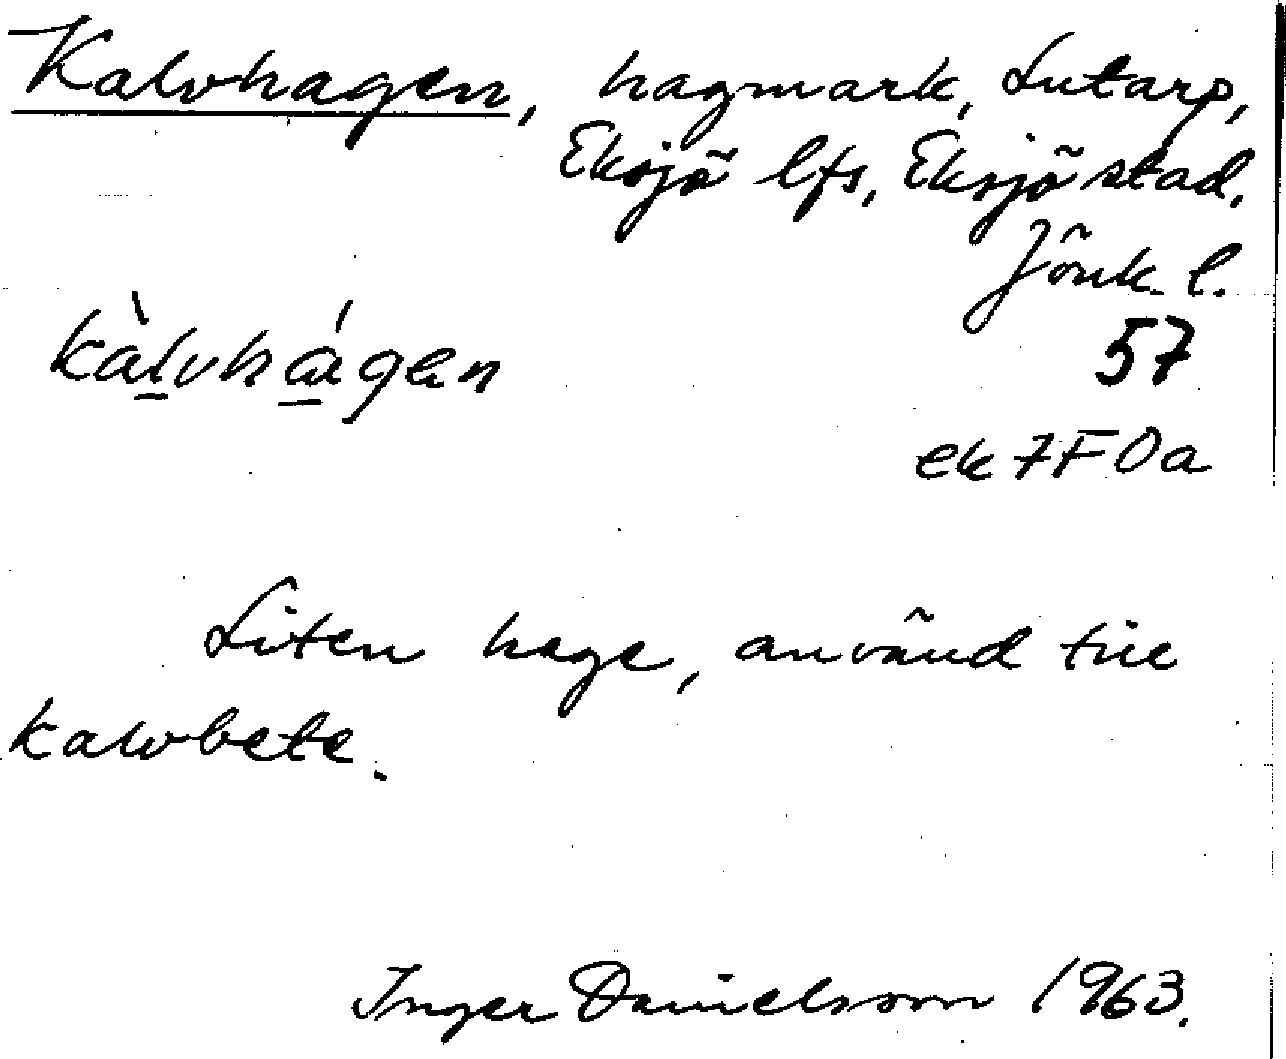 Kalvhagen, hagmark, Lutarp,
Eksjö lfs, Eksjö stad,
Jönk. l.
kàlvhágen
57
ek 7F0a
Liten hage, använd till
kalvbete.
Inger Danielsson 1963.